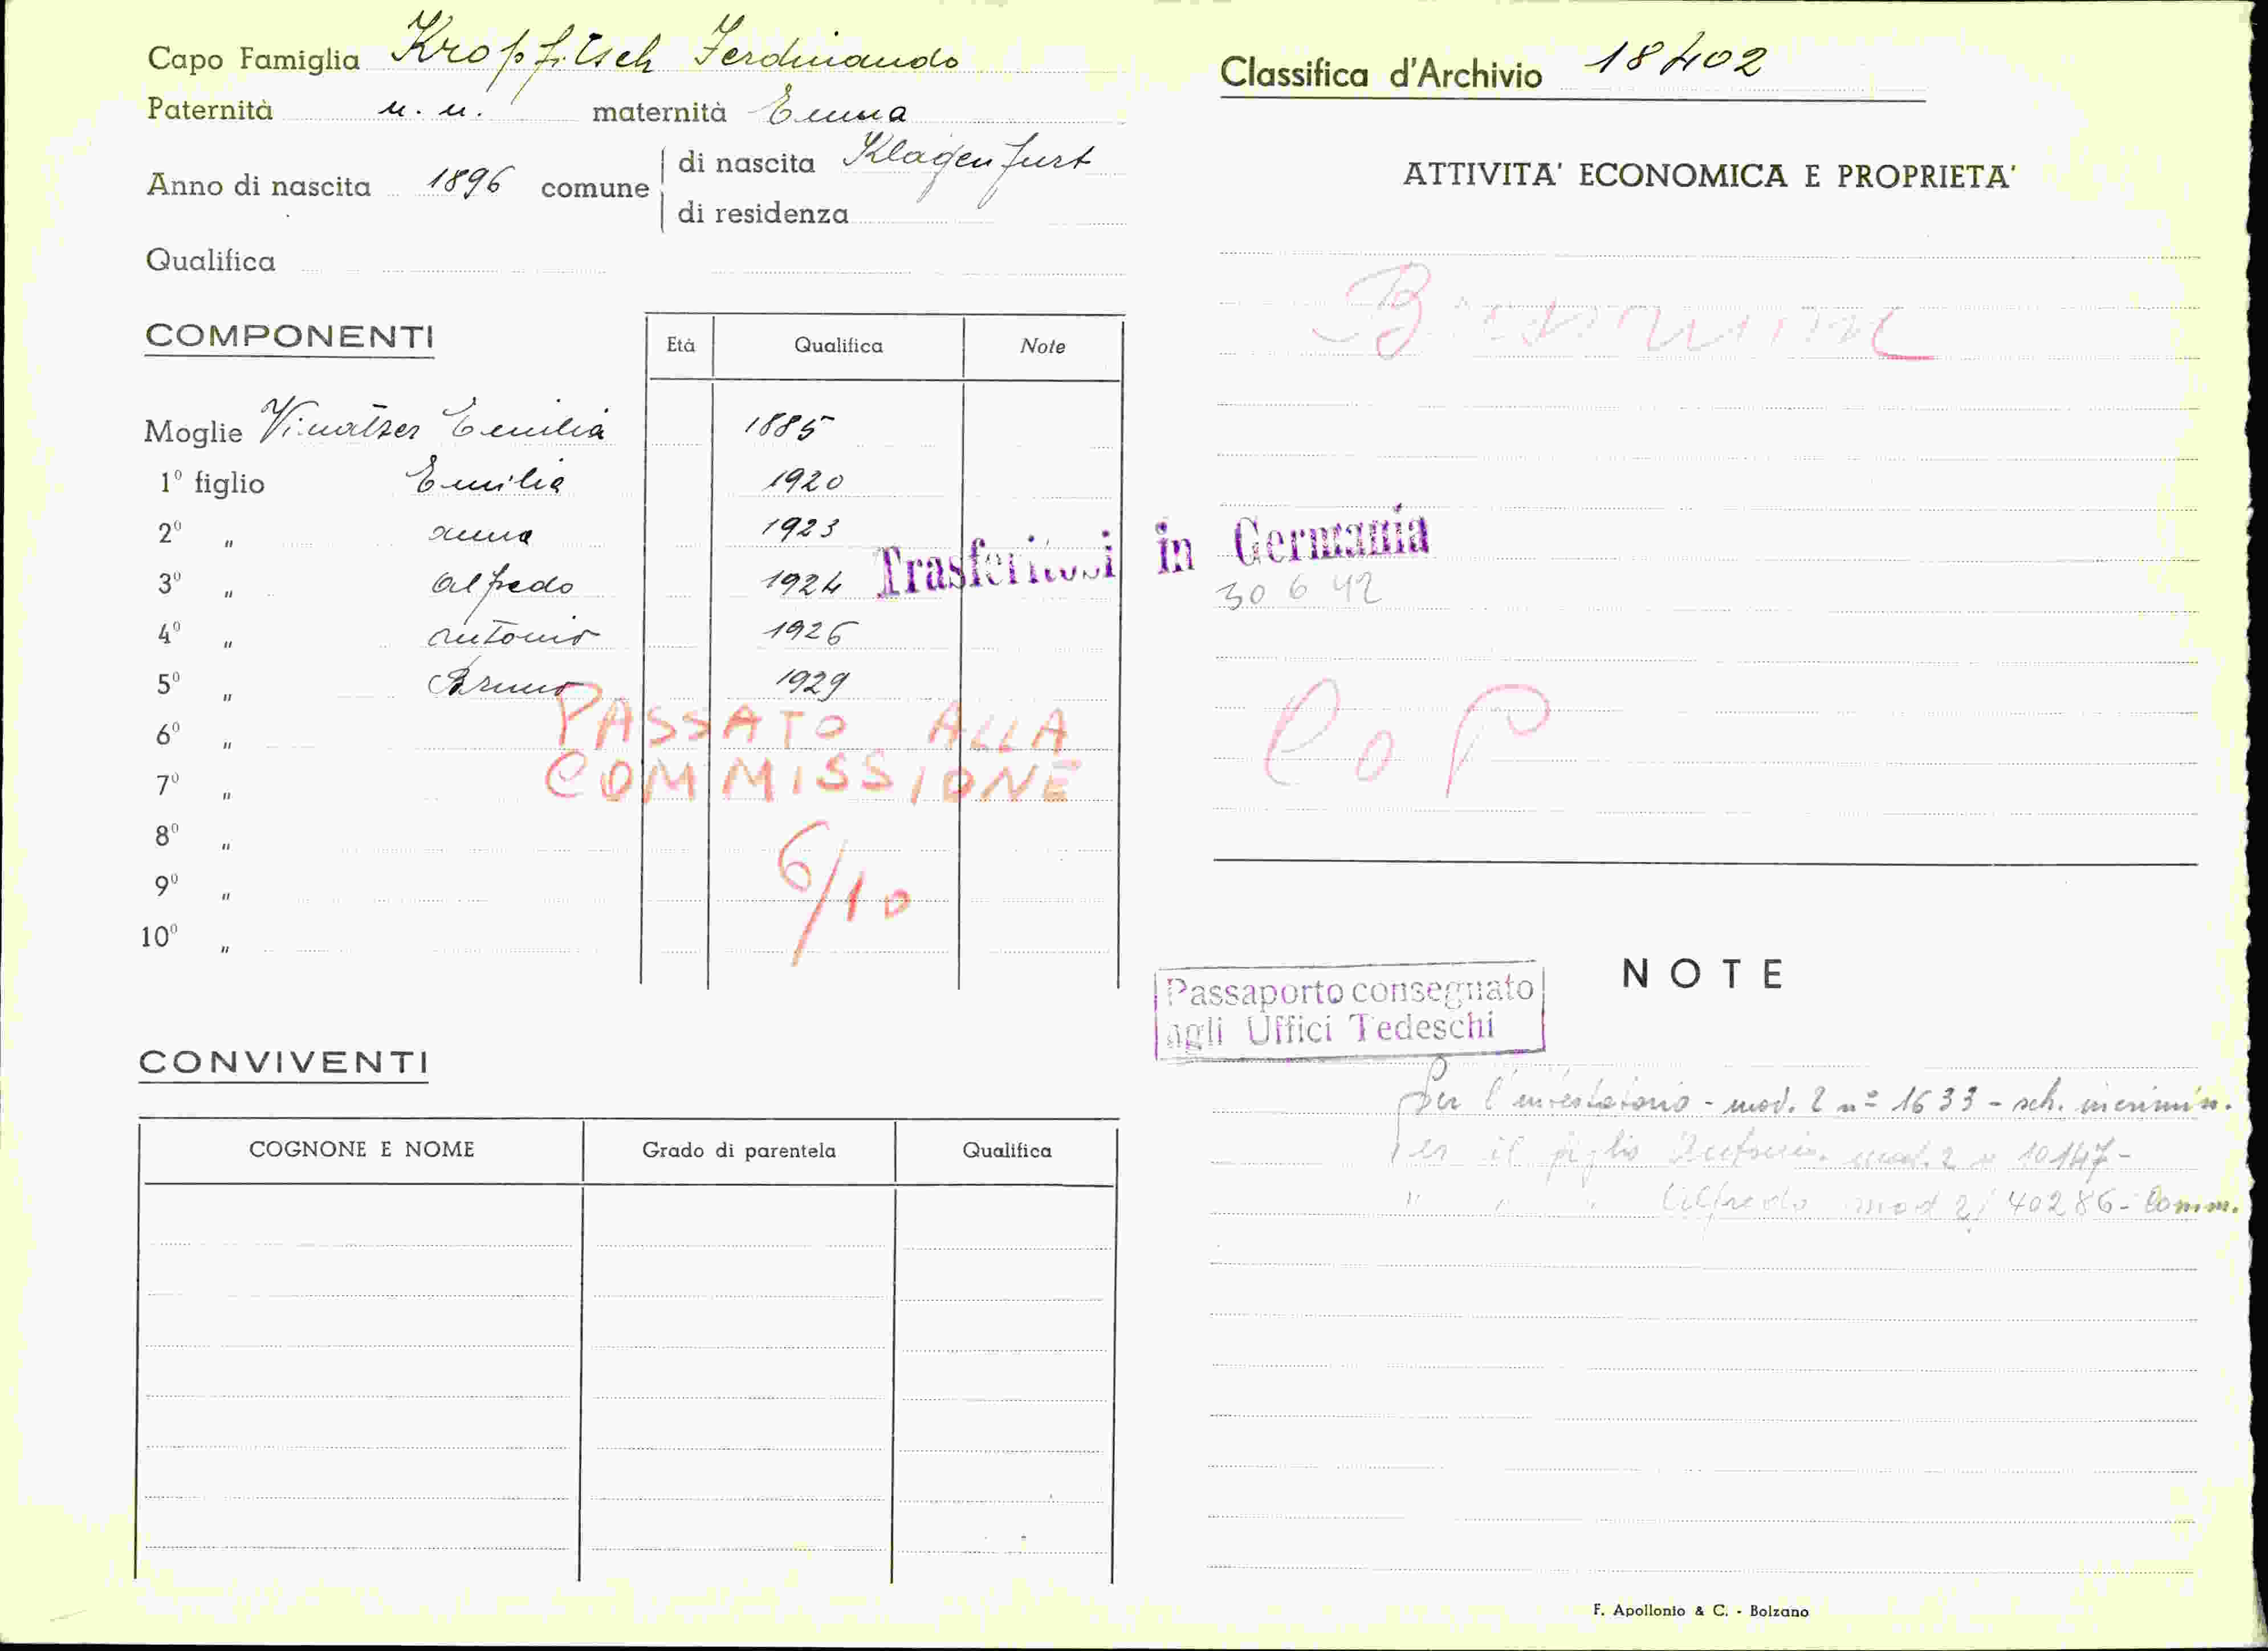 Capo Famiglia Kropfitsch Ferdinando
Paternità n. n. maternità Emma
Anno di nascita 1896 comune
di nascita Klagenfurt
di residenza
Qualifica
COMPONENTI
Età Qualifica Note
Moglie Vinatzer Emilia 1885
1º figlio Emilia 1920
2º " Anna 1923
3º " Alfredo 1924
4º " Antonio 1926
5º " Bruno 1929
6º "
7º "
8º "
9º "
10º "
PASSATO ALLA
COMMISSIONE
6/10
CONVIVENTI
COGNONE E NOME Grado di parentela Qualifica
Classifica d'Archivio 18402
ATTIVITA' ECONOMICA E PROPRIETA'
Trasferitosi in Germania
30 6 42
C o P
NOTE
Passaporto consegnato
agli Uffici Tedeschi
Per l'intestatario - mod. 2 nº 1633 - sch. incrimin.
Per il figlio Antonio. mod. 2 n 10147 -
" " " Alfredo mod 2/ 40286 - Comm.
F. Apollonio & C. - Bolzano